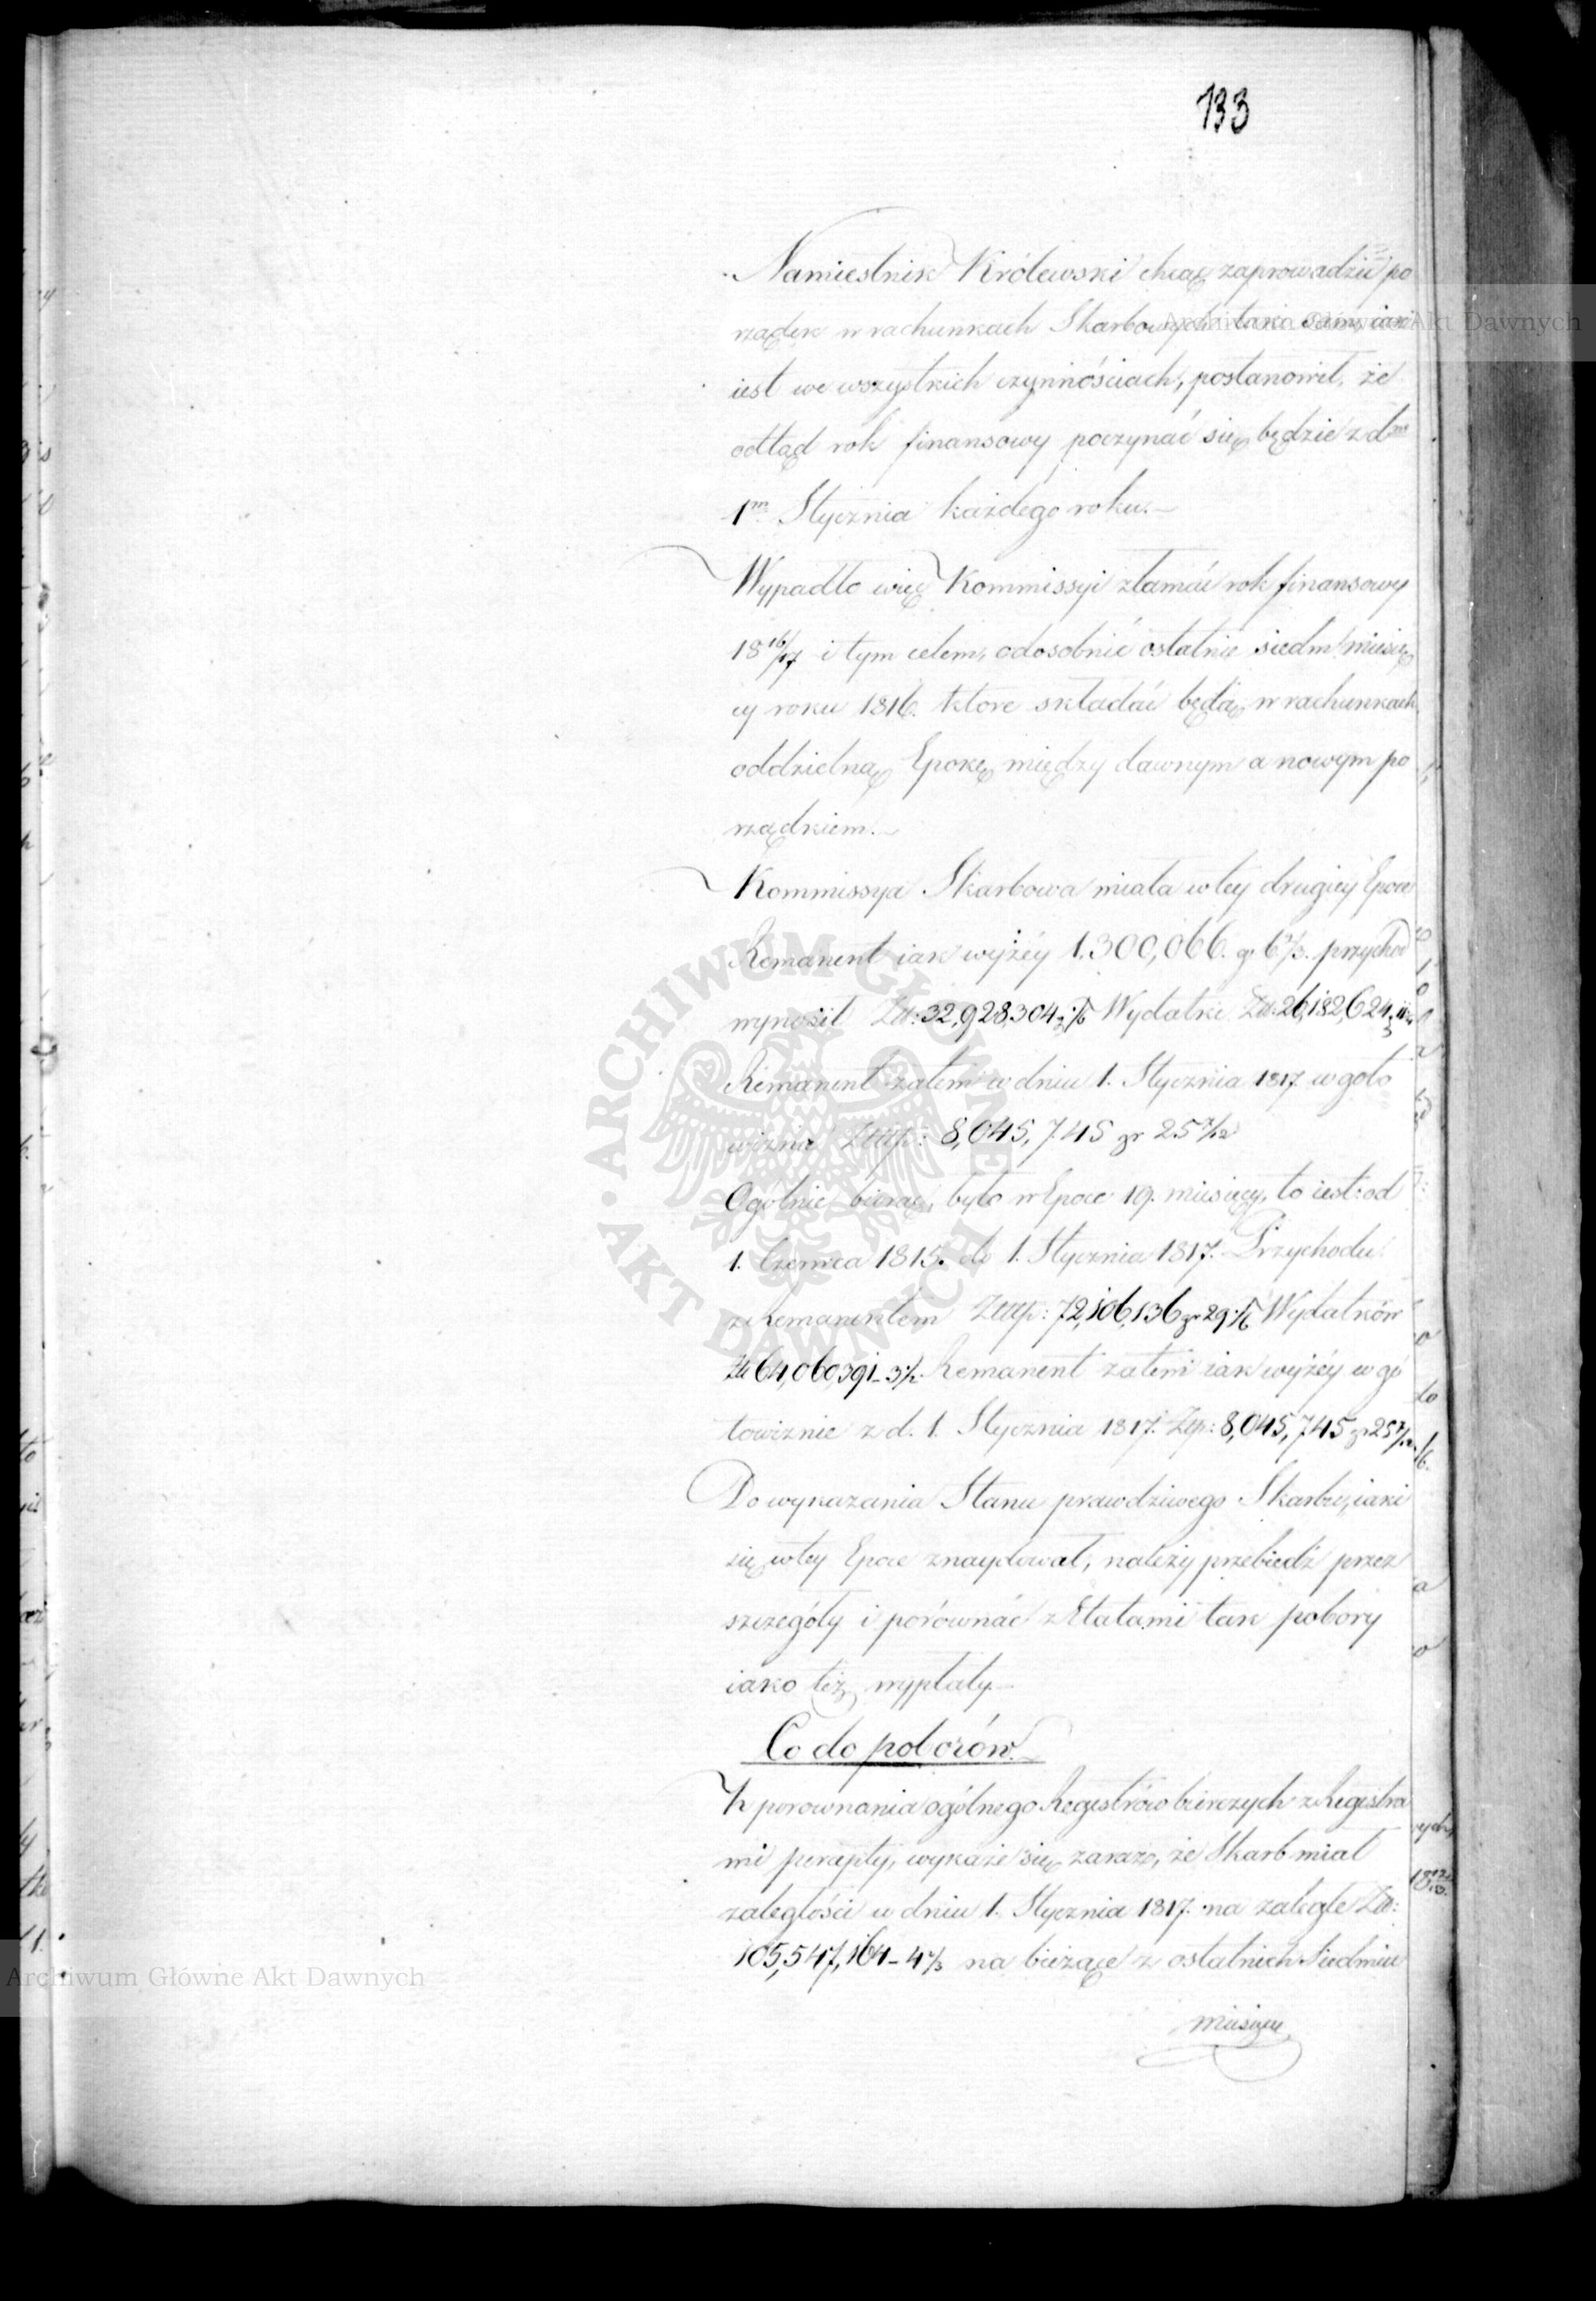 133
Namiestnik Królewski chcąc zaprowadzić po
rządek w rachunkach Skarbowych taki sam, iaki
iest we wszystkich czynnościach, postanowił, że
odtąd rok finansowy poczynać się będzie z dm
1m Stycznia każdego roku.—
Wypadło więc Kommissyi złamać rok finansowy
18 16/17 i tym celem, odosobnić ostatnie siedm miesię
cy roku 1816. ktore składać będą w rachunkach
oddzielną Epokę między dawnym a nowym po
rządkiem.—
Kommissya Skarbowa miała w tey drugiey Epoce
Remanent iak wyżéy 1,300,066. gr 6 2/3. przychod
wynosił Zł: 32,928,304 Wydatki Zł: 26,182,624
Remanent zatem w dniu 1. Stycznia 1817 w goto
wiźnie Złłp: 8,045,745 gr 25 7/12
Ogólnie biorąc, było w Epoce 19. miesięcy, to iest: od
1. Czerwca 1815. do 1. Stycznia 1817. Przychodu
z Remanentem Złłp: 72,106,136 gr 29 1/6 Wydatków
Zł 64,060,391 - 3 1/2 Remanent zatem iak wyżéy w go
towiznie z d. 1. Stycznia 1817. Złp: 8,045,745 gr 25 7/12.
Do wykazania Stanu prawdziwego Skarbu, iaki
się w tey Epoce znaydował, należy przebiedz przez
szczegóły i porównać z Etatami tak pobory
iako też wypłaty—
Co do poborów.—
Z porownania ogólnego Regestrów bierczych z Regestra
mi percepty, wykaże się zaraz, że Skarb miał
zaległości w dniu 1. Stycznia 1817. na zaległe Zł:
105,547,164 - 4 1/3 na bieżące z ostatnich Siedmiu
miesięcy
Archiwum Główne Akt Dawnych
Archiwum Główne Akt Dawnych
ARCHIWUM GŁÓWNE AKT DAWNYCH